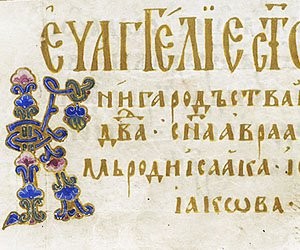 ЕУАГГЕЛІЕ СТО
КНИГА РОДЪСТВА І
ДВА҃ · СН҃А АВРАА
МЬ РОДИ ІСААКА · ІС
ІАКѠВА ·